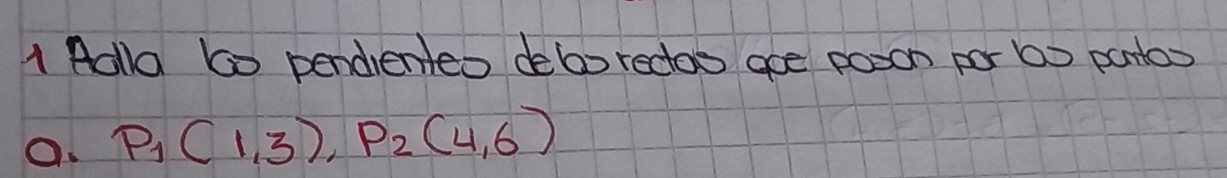 1 Adlla los pendientes de las rectas que pasan por los puntos
a. P₁ (1,3), P₂ (4,6)